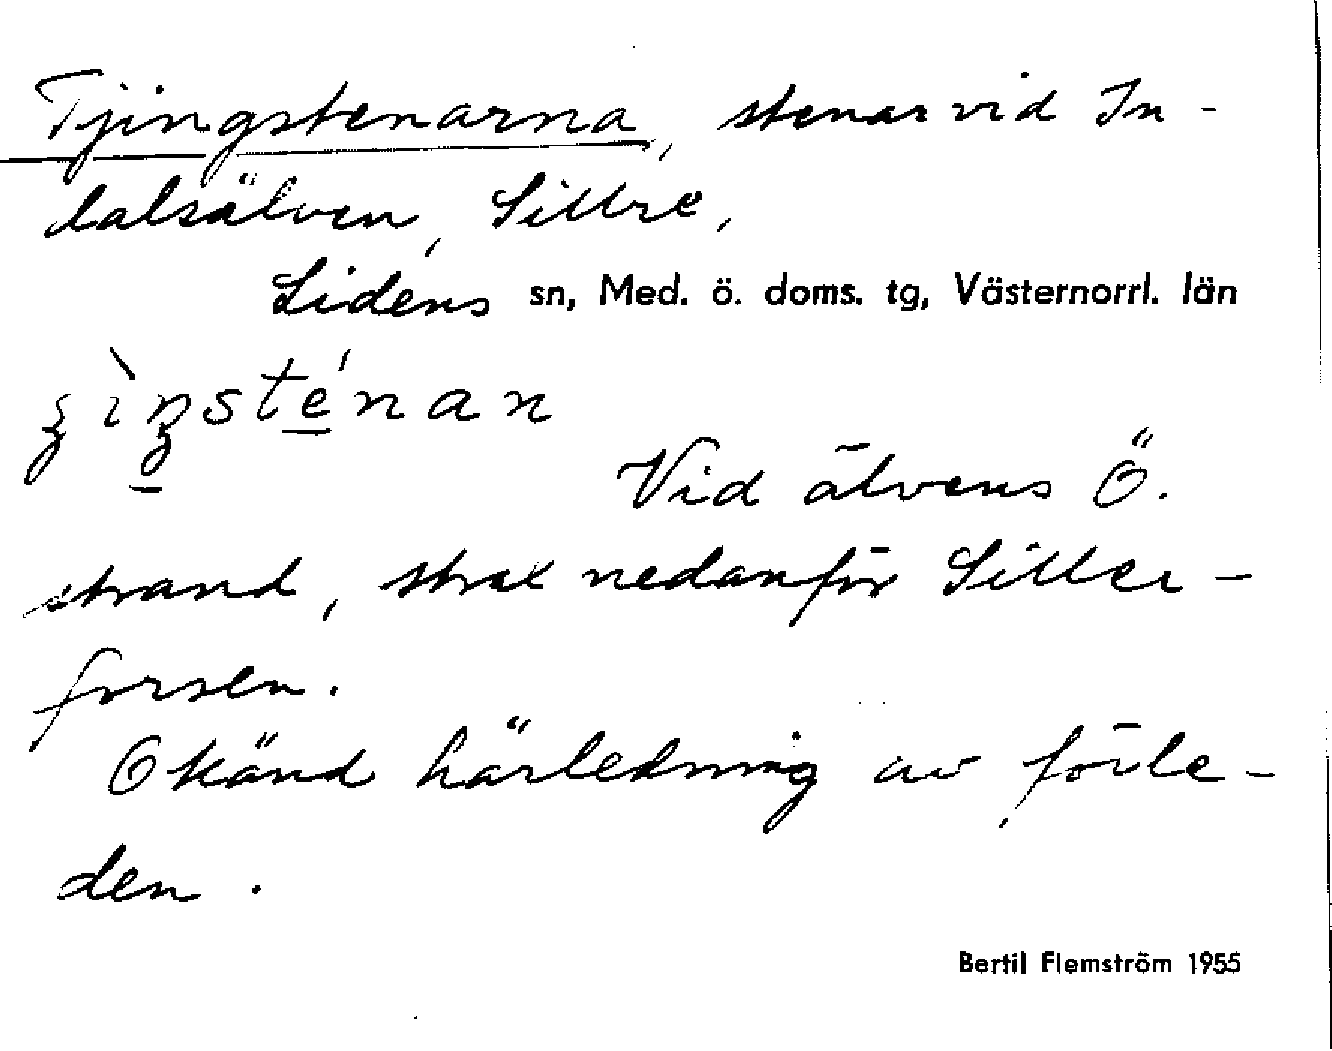 Tjingstenarna, stenar vid In-
dalsälven, Sillre,
Lidens sn, Med. ö. doms. tg, Västernorrl. län
Vid älvens Ö.
strand, strax nedanför Siller-
forsen.
Okänd härledning av förle-
den.
Bertil Flemström 1955